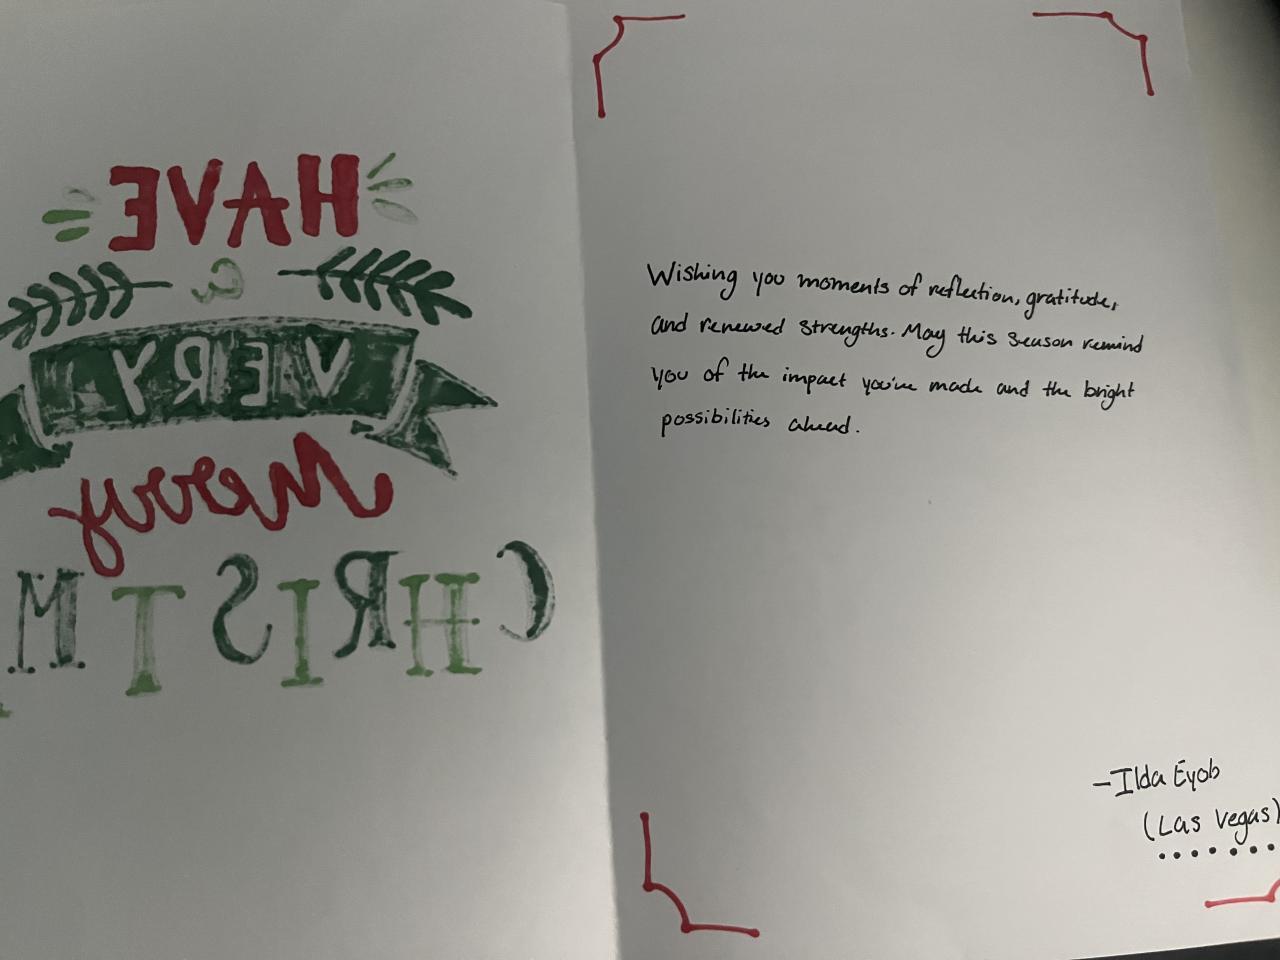 HAVE
a
VERY
Merry
CHRISTM
Wishing you moments of reflection, gratitude,
and renewed strengths. May this season remind
you of the impact you've made and the bright
possibilities ahead.
-Ilda Eyob
(Las Vegas)